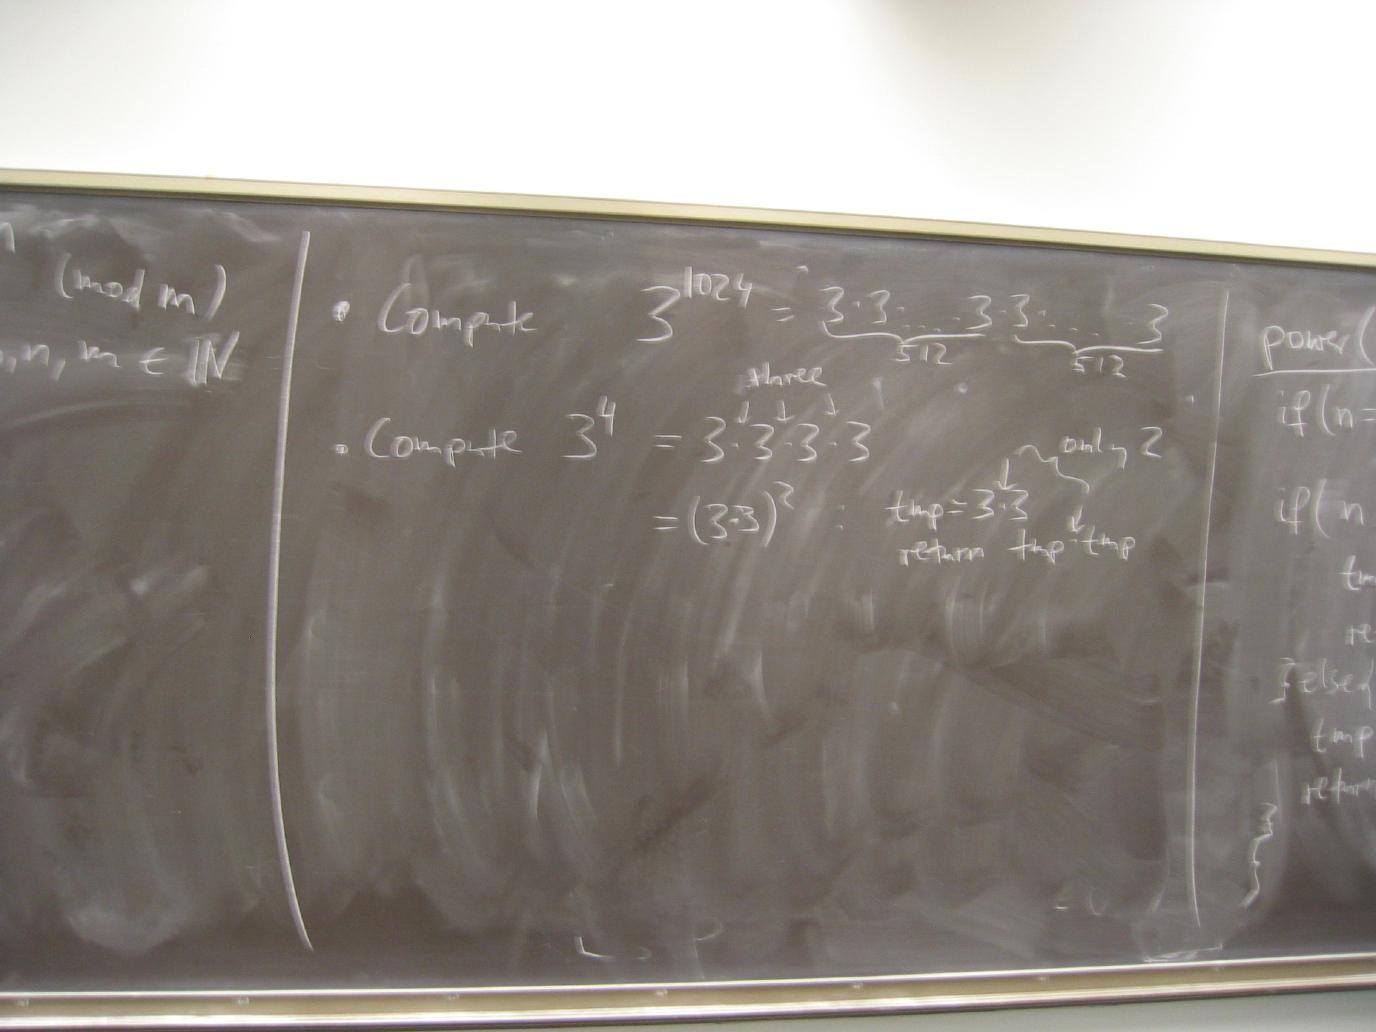 (mod m)
n, m ∈ ℕ
• Compute 3^1024 = 3·3 .... 3·3 ...... 3
512 512
three
• Compute 3^4 = 3·3·3·3
only 2
= (3·3)^2 : tmp = 3·3
return tmp·tmp
power(
if(n=
if(n
}else{
tmp
return
}